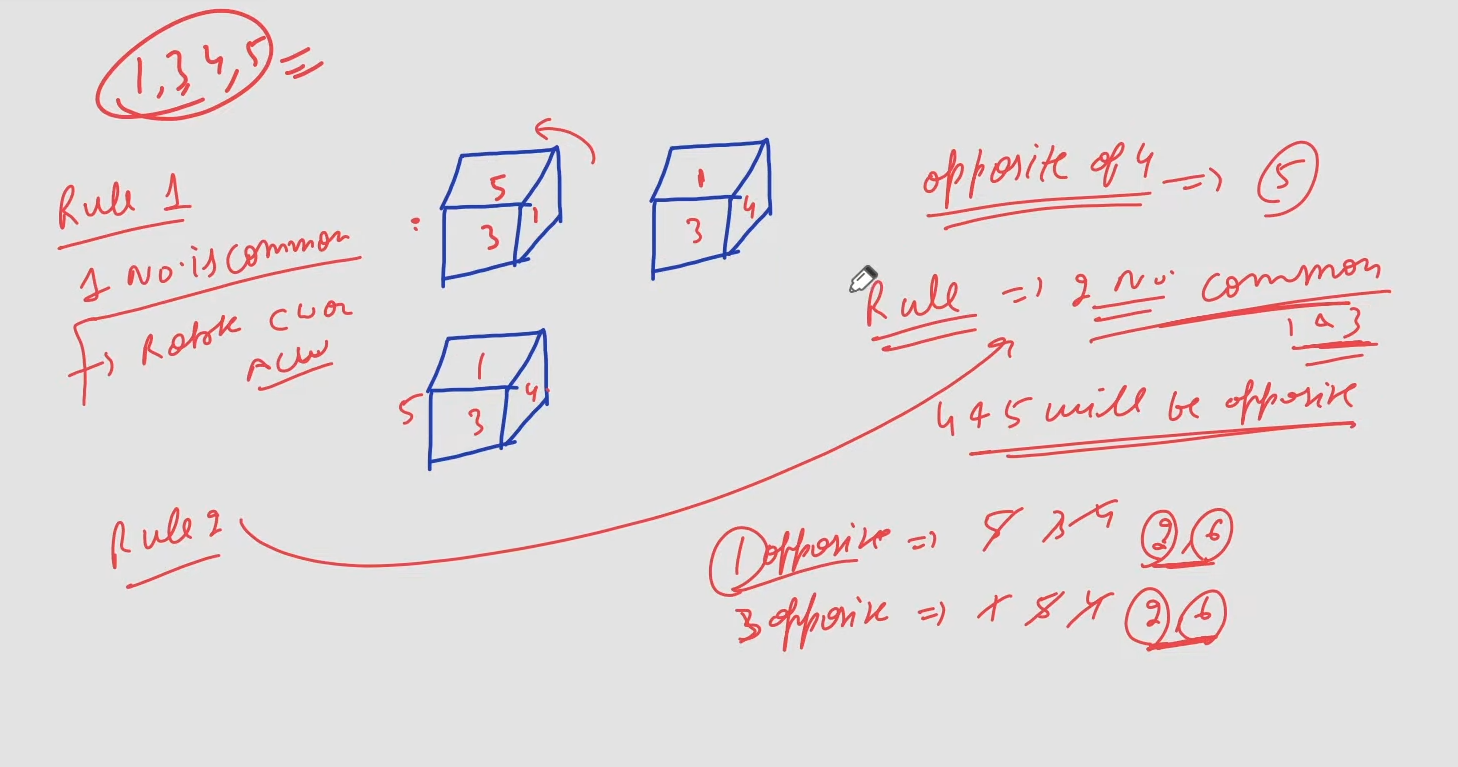 1, 3, 4, 5 =
Rule 1
1 No. is common
→ Rotate CW or
ACW
5
3
1
1
3
4
1
5
3
4
opposite of 4 => 5
Rule => 2 No. common
1 & 3
4 & 5 will be opposite
Rule 2
1 opposite => 5 3 4 2, 6
3 opposite => 1 5 4 2, 6